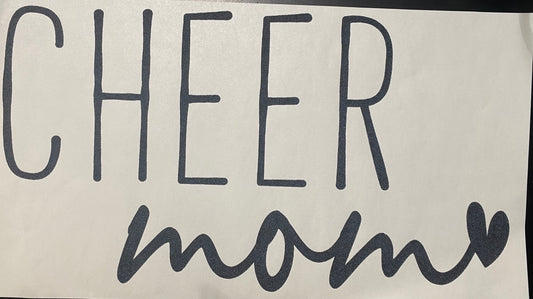 CHEER
mom